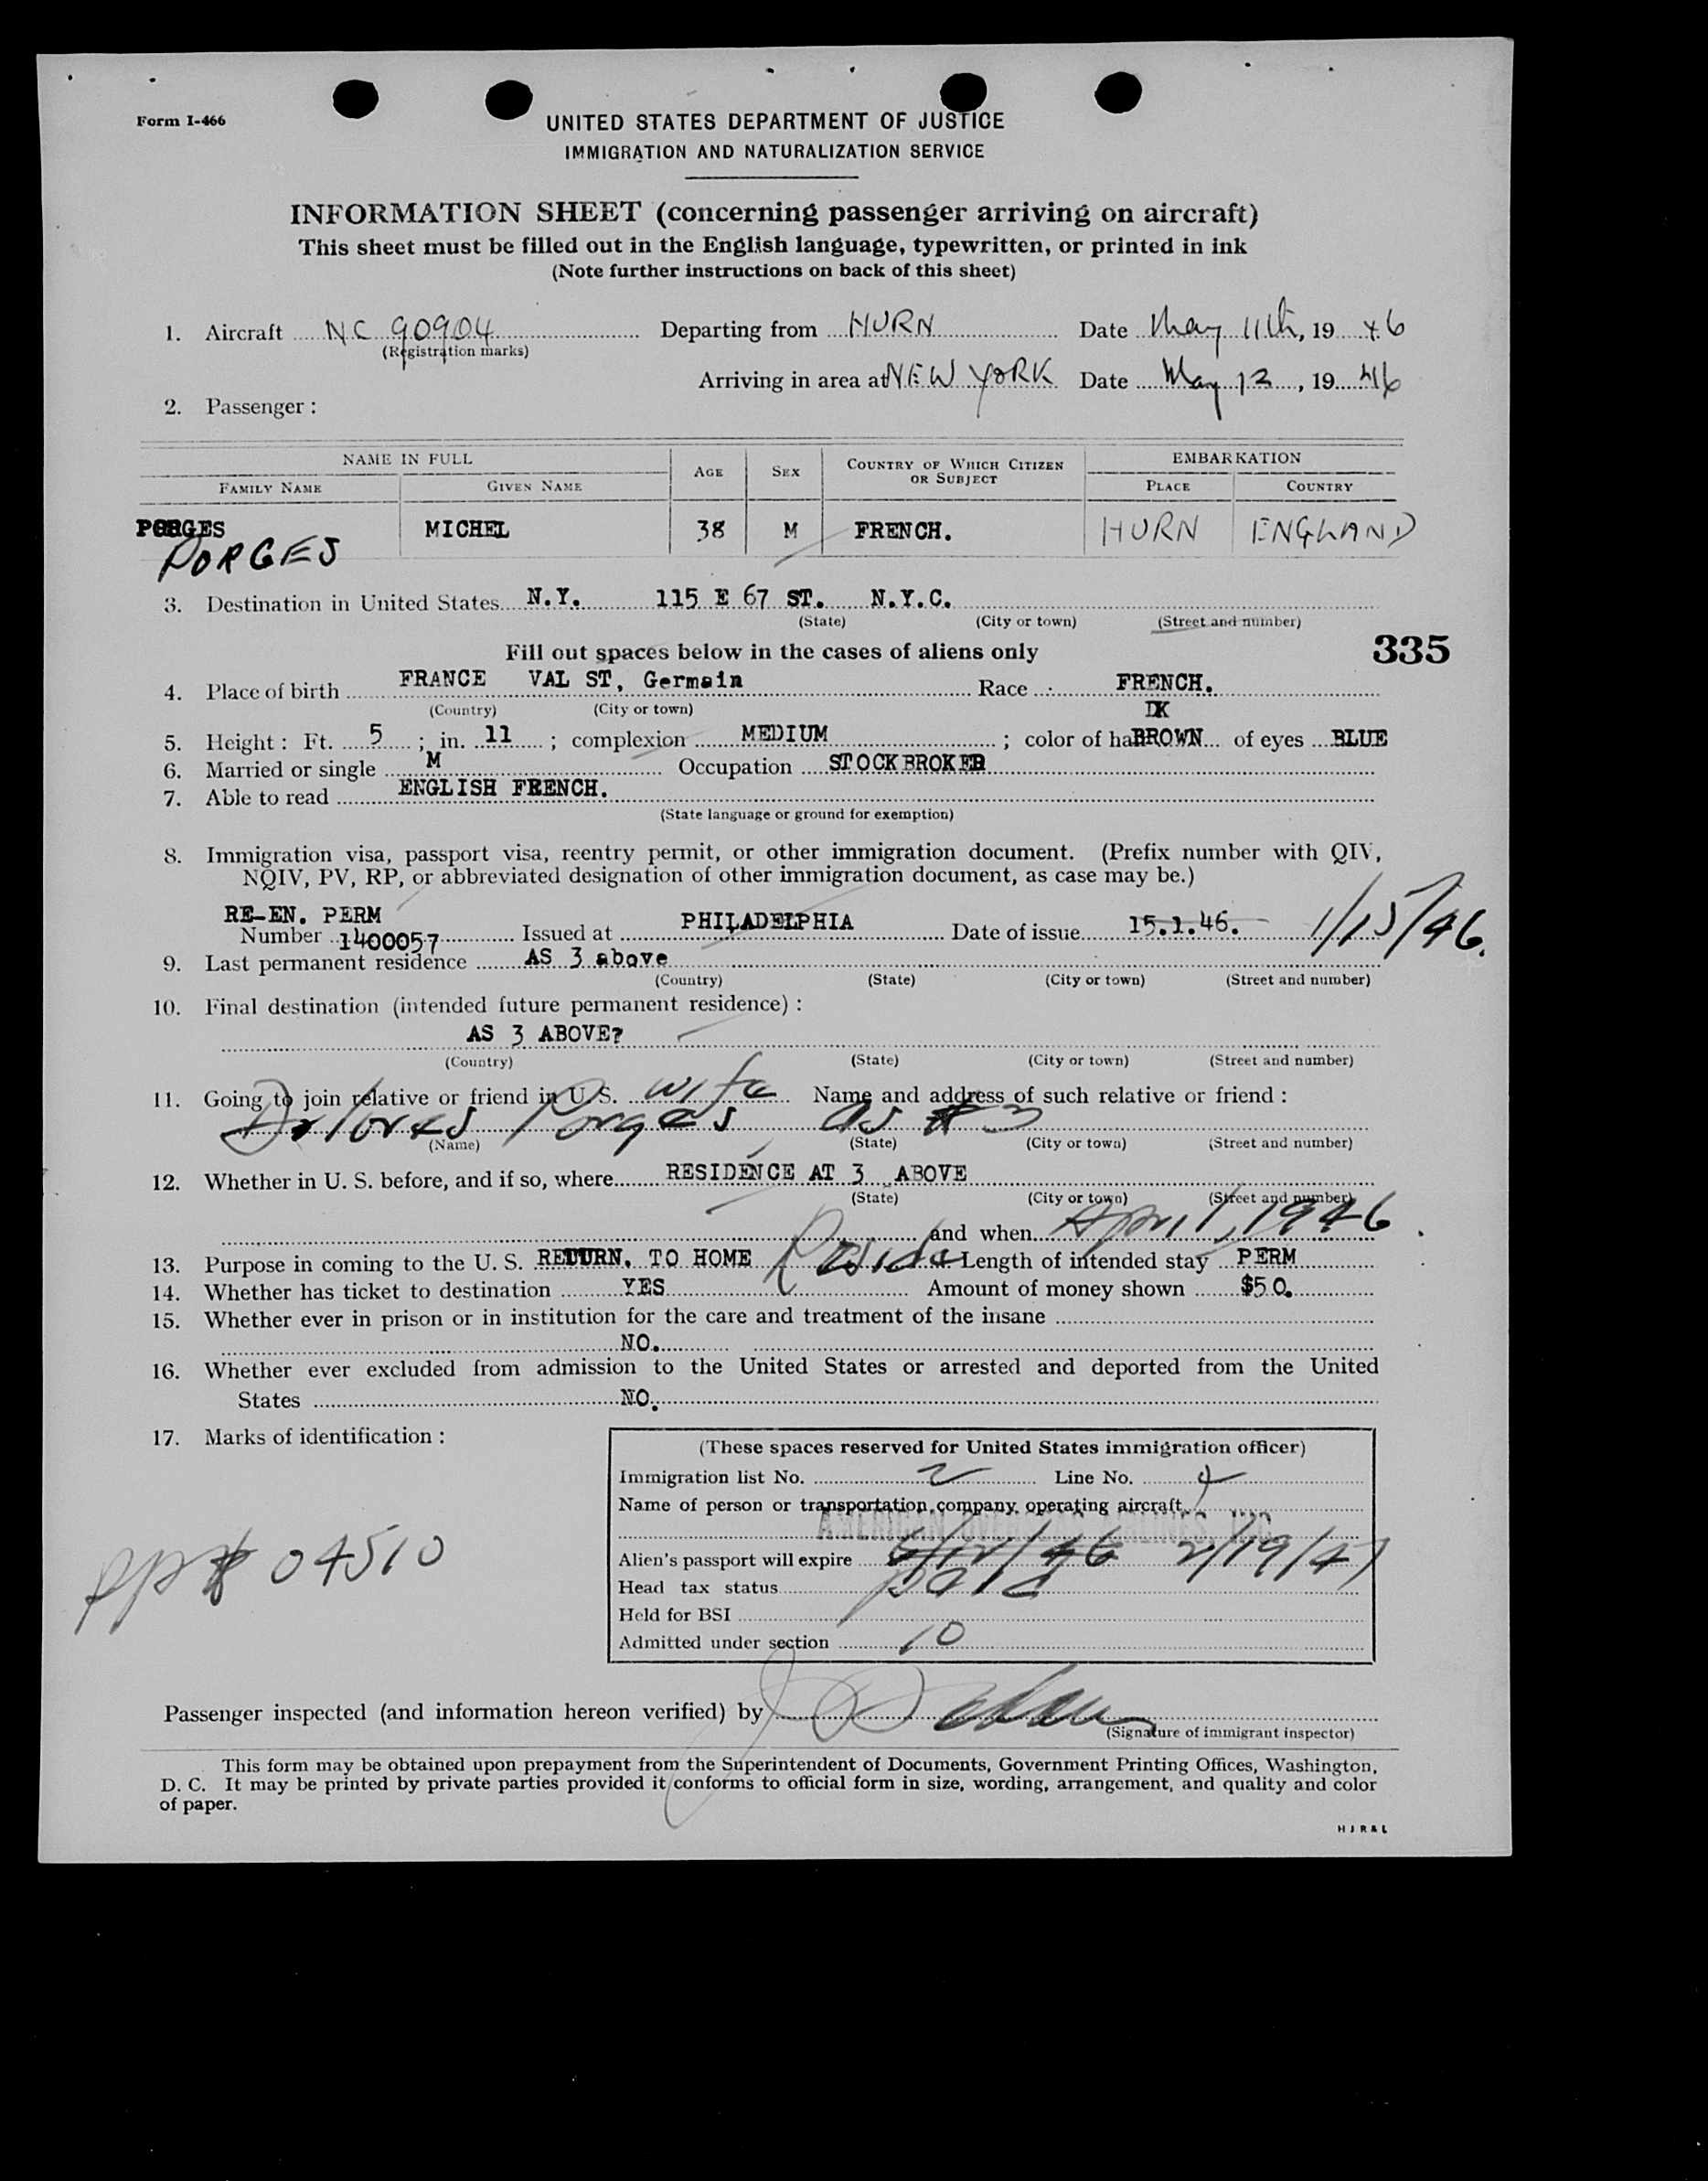 Form I-466
UNITED STATES DEPARTMENT OF JUSTICE
IMMIGRATION AND NATURALIZATION SERVICE
INFORMATION SHEET (concerning passenger arriving on aircraft)
This sheet must be filled out in the English language, typewritten, or printed in ink
(Note further instructions on back of this sheet)
1. Aircraft NC 90904 Departing from HURN Date May 11th, 19 46
(Registration marks)
Arriving in area at NEW YORK Date May 12, 19 46
2. Passenger :
NAME IN FULL AGE SEX COUNTRY OF WHICH CITIZEN OR SUBJECT EMBARKATION
FAMILY NAME GIVEN NAME PLACE COUNTRY
PORGES MICHEL 38 M FRENCH. HURN ENGLAND
PORGES
3. Destination in United States N.Y. 115 E 67 ST. N.Y.C.
(State) (City or town) (Street and number)
Fill out spaces below in the cases of aliens only 335
4. Place of birth FRANCE VAL ST, Germain Race FRENCH.
(Country) (City or town) DK
5. Height : Ft. 5 ; in. 11 ; complexion MEDIUM ; color of ha BROWN of eyes BLUE
6. Married or single M Occupation STOCKBROKER
7. Able to read ENGLISH FRENCH.
(State language or ground for exemption)
8. Immigration visa, passport visa, reentry permit, or other immigration document. (Prefix number with QIV,
NQIV, PV, RP, or abbreviated designation of other immigration document, as case may be.)
RE-EN. PERM
Number 1400057 Issued at PHILADELPHIA Date of issue 15.1.46. 1/15/46.
9. Last permanent residence AS 3 above
(Country) (State) (City or town) (Street and number)
10. Final destination (intended future permanent residence) :
AS 3 ABOVE?
(Country) (State) (City or town) (Street and number)
11. Going to join relative or friend in U.S. wife Name and address of such relative or friend :
Delores Porges as # 3
(Name) (State) (City or town) (Street and number)
12. Whether in U. S. before, and if so, where RESIDENCE AT 3 ABOVE
(State) (City or town) (Street and number)
and when April, 1946
13. Purpose in coming to the U. S. RETURN. TO HOME Reside Length of intended stay PERM
14. Whether has ticket to destination YES Amount of money shown $50.
15. Whether ever in prison or in institution for the care and treatment of the insane
NO.
16. Whether ever excluded from admission to the United States or arrested and deported from the United
States NO.
17. Marks of identification :
(These spaces reserved for United States immigration officer)
Immigration list No. 2 Line No. 4
Name of person or transportation company operating aircraft
AMERICAN OVERSEAS AIRLINES, INC.
Alien's passport will expire 6/12/46 2/19/47
Head tax status paid
Held for BSI
Admitted under section 10
PP# 04510
Passenger inspected (and information hereon verified) by
(Signature of immigrant inspector)
This form may be obtained upon prepayment from the Superintendent of Documents, Government Printing Offices, Washington,
D. C. It may be printed by private parties provided it conforms to official form in size, wording, arrangement, and quality and color
of paper.
HJR&L